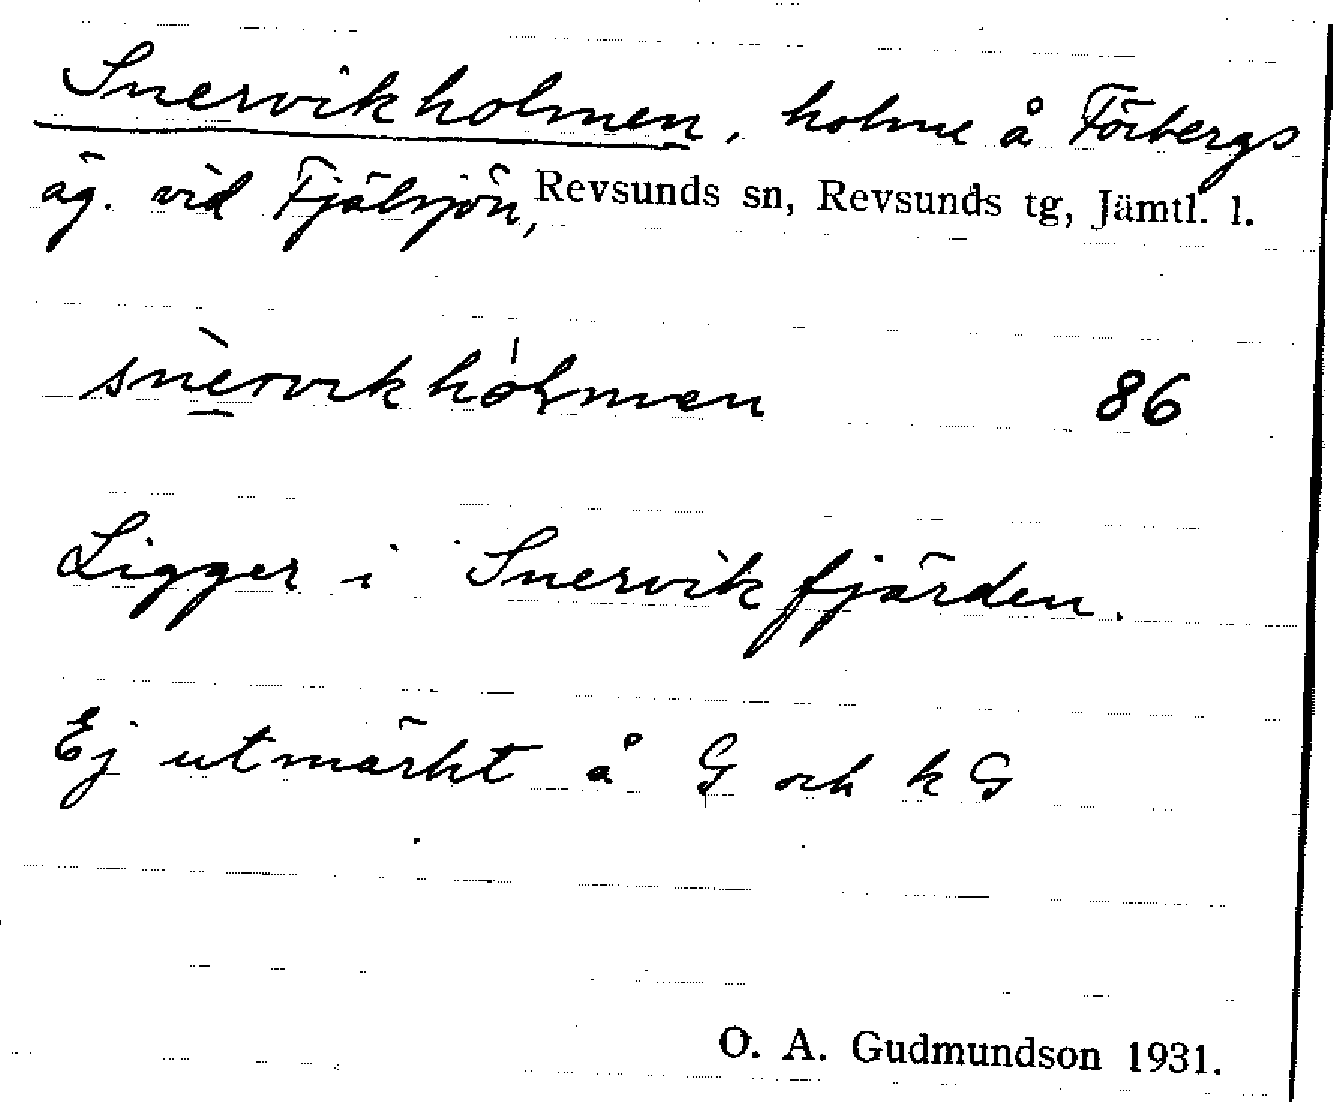 Snervikholmen, holme å Förbergs
äg. vid Fjälsjön, Revsunds sn, Revsunds tg, Jämtl. l.
snèrvikhólmen 86
Ligger i Snervikfjärden.
Ej utmärkt å G och k G
O. A. Gudmundson 1931.